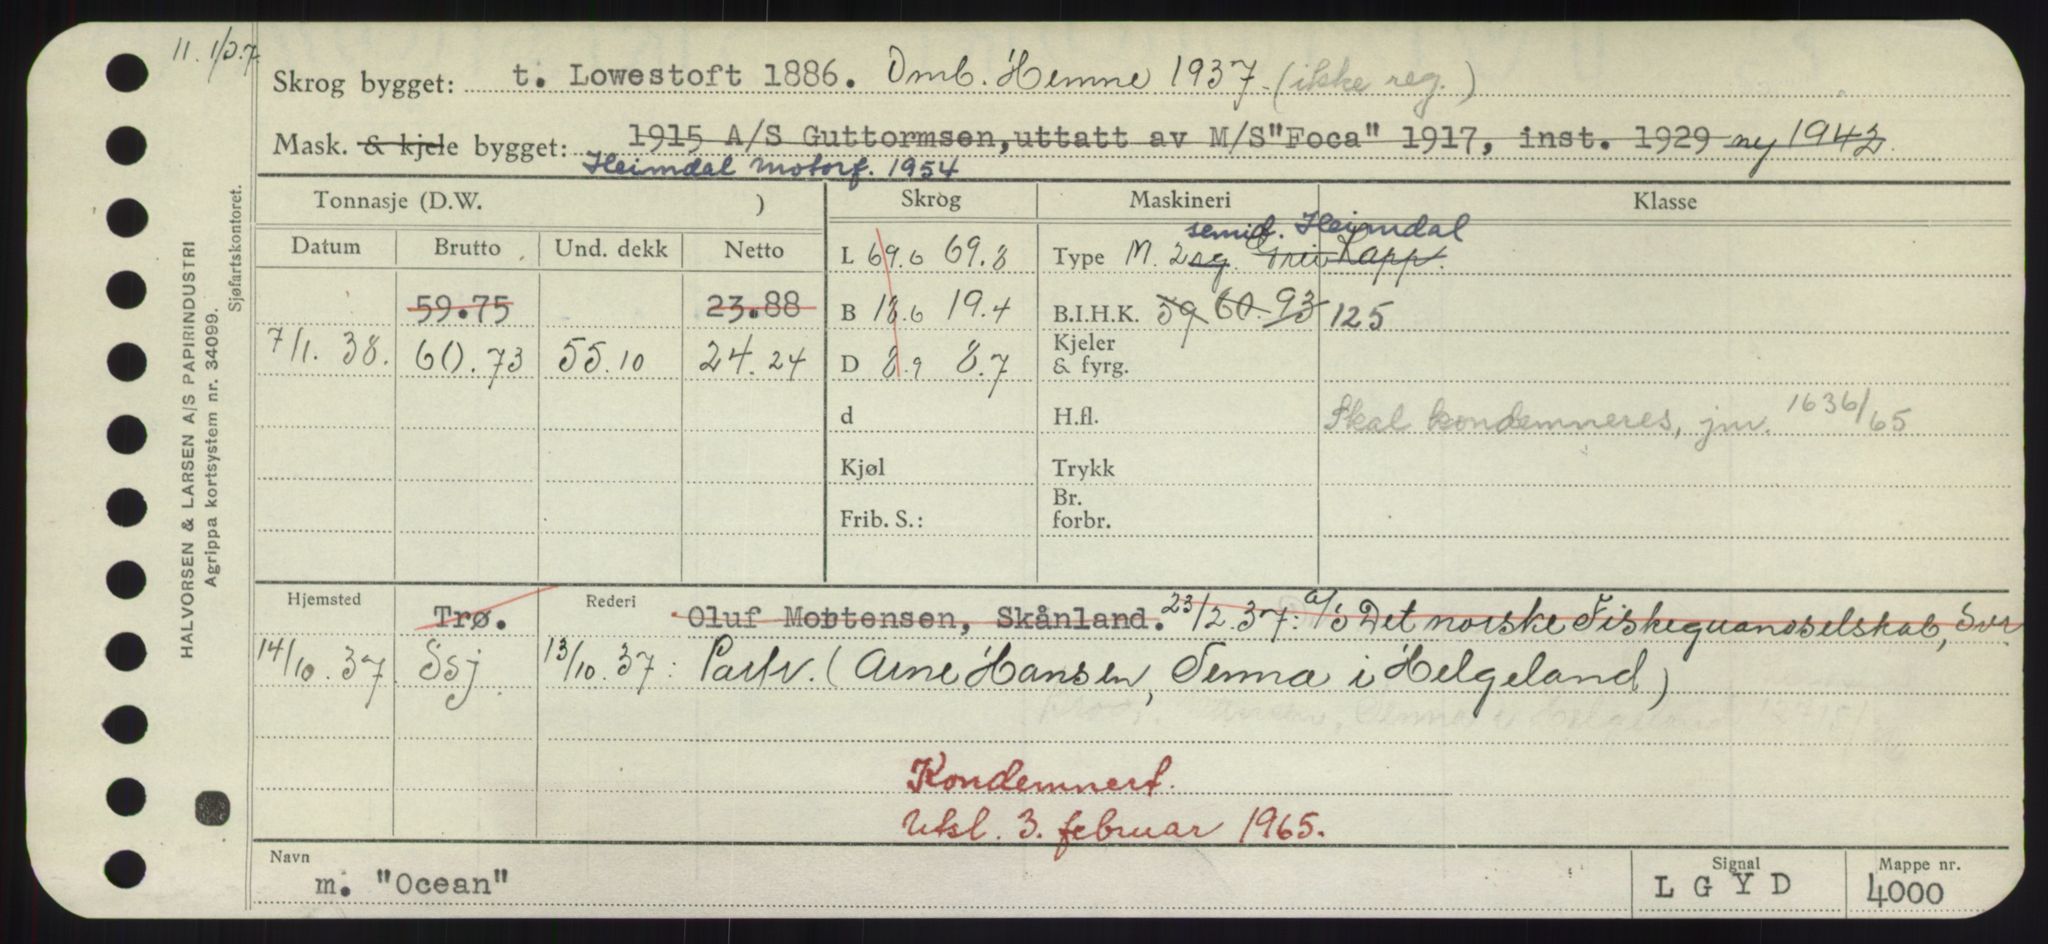 11. 1/3.7
Skrog bygget: t. Lowestoft 1886. Omb. Hemne 1937. (ikke reg.)
Mask. & kjele bygget: 1915 A/S Guttormsen, uttatt av M/S "Foca" 1917, inst. 1929 ny 1942.
Heimdal motorf. 1954
Tonnasje (D.W. ) Skrog Maskineri Klasse
semid. Heimdal
Datum Brutto Und. dekk Netto L 69.6 69.8 Type M. 2 sg.
59.75 23.88 B 18.6 19.4 B.I.H.K. 59 60. 93 125
7/1. 38. 60.73 55.10 24.24 D 8.9 8.7 Kjeler & fyrg.
d H.fl. Skal kondemneres, jnr. 1636/65
Kjøl Trykk
Frib. S.: Br. forbr.
Hjemsted Trø. Rederi Oluf Mortensen, Skånland. 23/2.37: a/s Det norske Fiskeguanoselskab, Svr
14/10.37 Ssj 13/10.37: Partr. (Arne Hansen, Tenna i Helgeland)
Kondemnert.
Utsl. 3. februar 1965.
Navn m. "Ocean" Signal L G Y D Mappe nr. 4000
HALVORSEN & LARSEN A/S PAPIRINDUSTRI
Agrippa kortsystem nr. 34099.
Sjøfartskontoret.